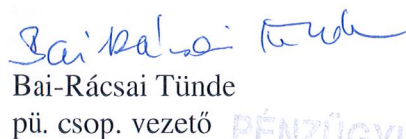 Bai Rácsai Tünde
Bai-Rácsai Tünde
pü. csop. vezető PÉNZÜGYI